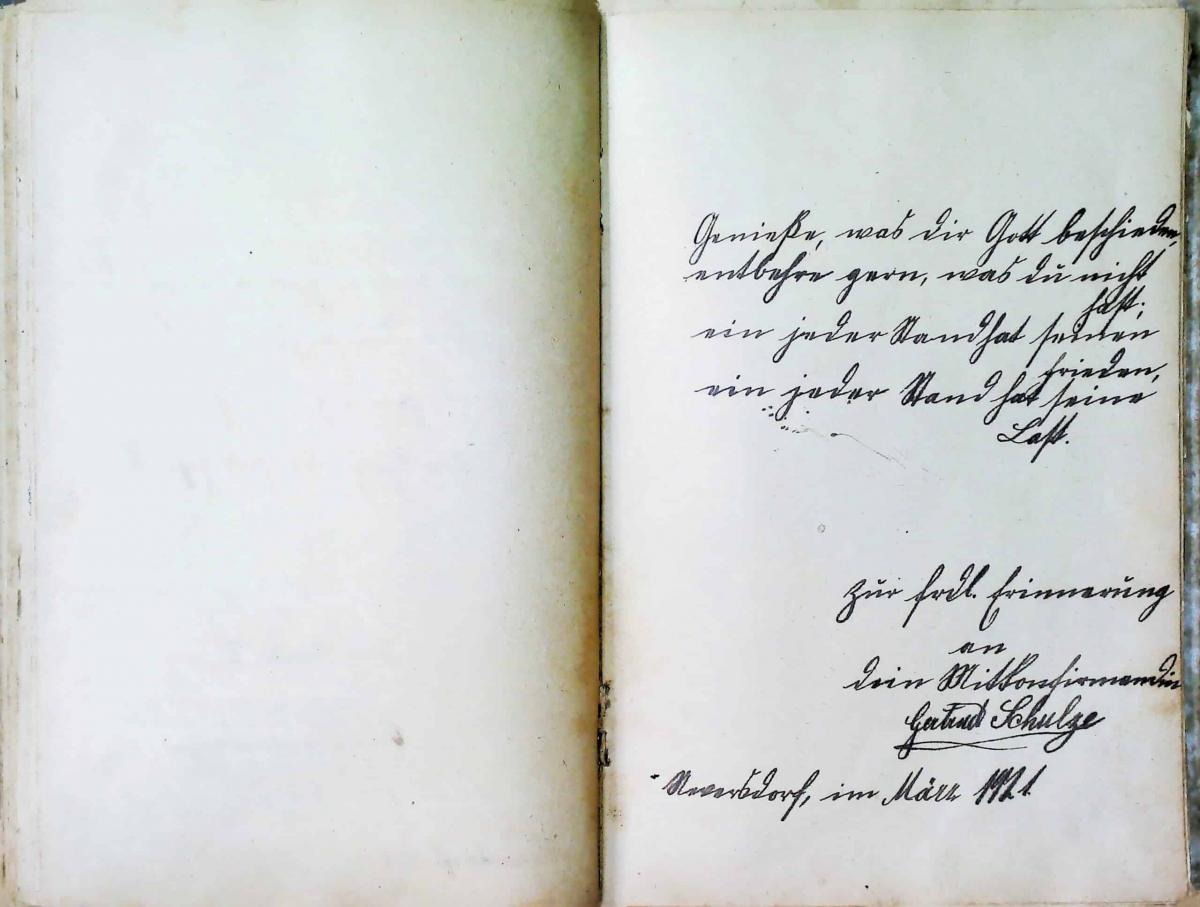 Genieße, was dir Gott beschieden,
entbehre gern, was du nicht
hast;
ein jeder Stand hat seinen
Frieden,
ein jeder Stand hat seine
Last.
Zur frdl. Erinnerung
an
dein Mitkonfirmandin
Gertrud Schulze
im März 1921.